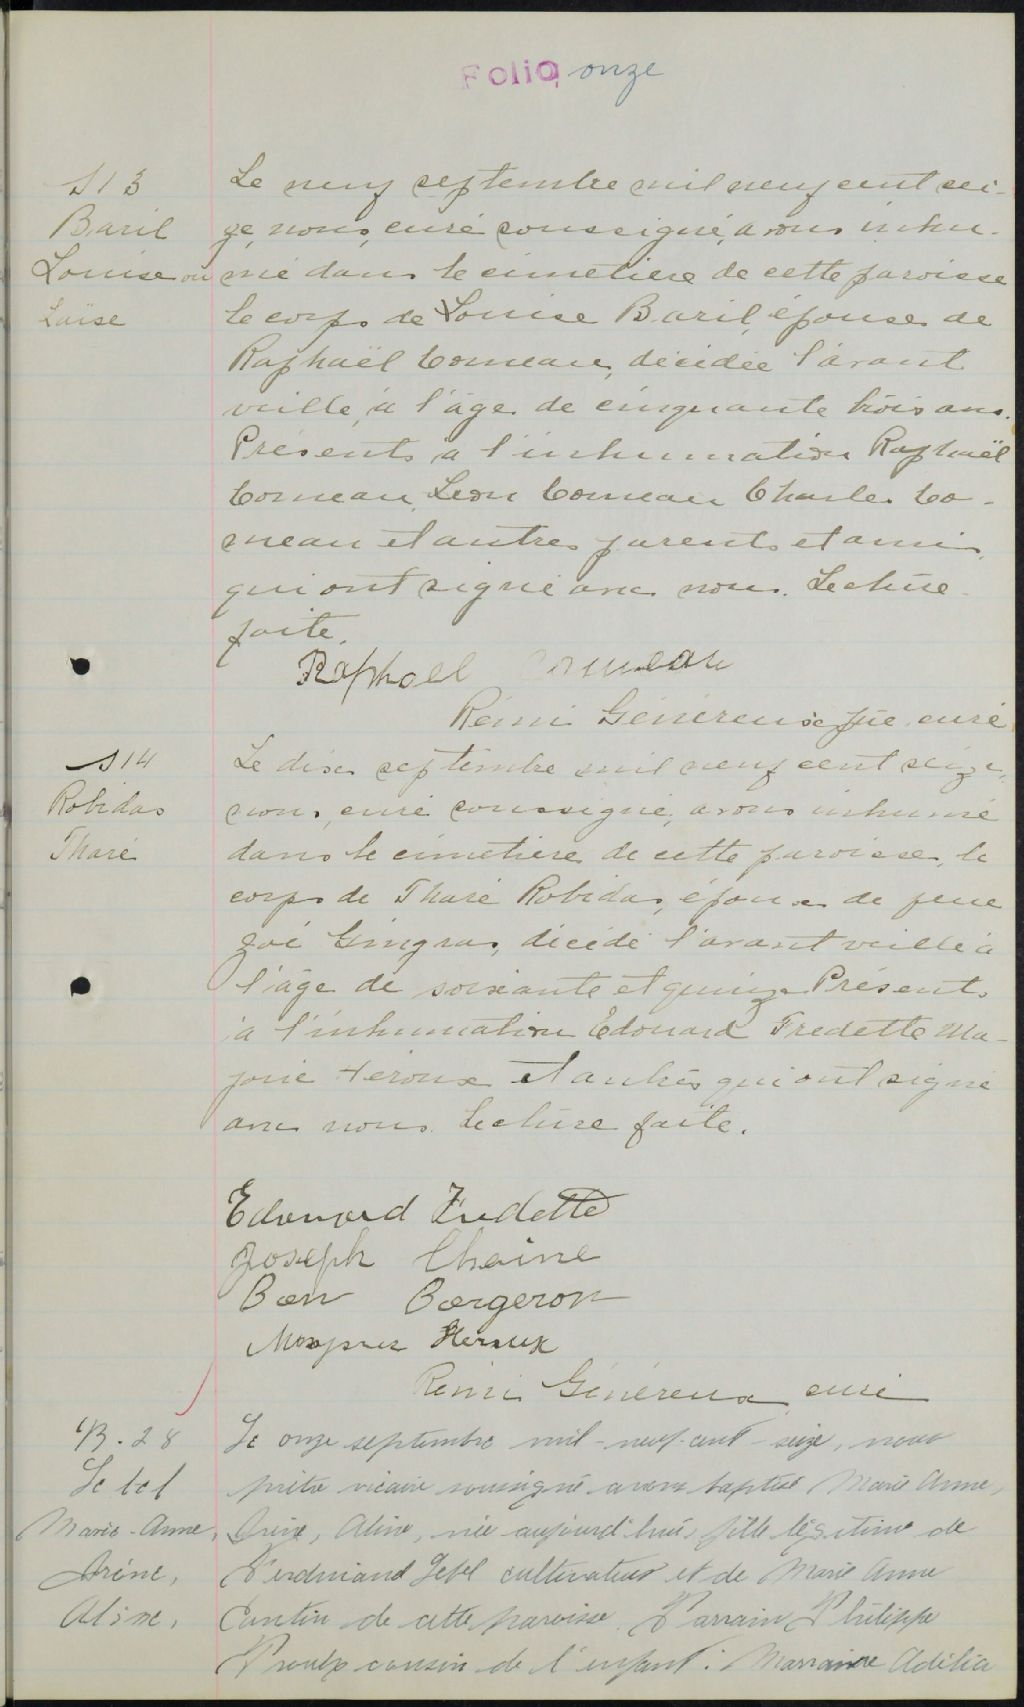 Folio onze
S 13
Baril
Louise ou
Laïse
Le neuf septembre mil neuf cent sei-
ze, nous, curé soussigné, avons inhu-
mé dans le cimetière de cette paroisse
le corps de Louise Baril, épouse de
Raphaël Comeau, décédée l'avant
veille, à l'âge de cinquante trois ans.
Présents à l'inhumation Raphaël
Comeau, Léon Comeau Charles Co-
meau et autres parents et amis,
qui ont signé avec nous. Lecture
faite.
Raphael Comeau
Rémi Généreux ptre, curé
S 14
Robidas
Tharé
Le dix septembre mil neuf cent seize,
nous, curé soussigné, avons inhumé
dans le cimetière de cette paroisse, le
corps de Tharé Robidas, époux de feue
Zoé Gingras, décédé l'avant veille à
l'âge de soixante et quinze Présents
à l'inhumation Edouard Fredette Ma-
joric Héroux et autres qui ont signé
avec nous. Lecture faite.
Edouard Fredette
Joseph Chaine
Bergeron
Heroux
Rémi Généreux curé
B. 28
Lebel
Marie-Anne,
Irène,
Aline,
Le onze septembre mil-neuf-cent-seize, nous
prêtre vicaire soussigné avons baptisé Marie Anne,
Irène, Aline, née aujourd'hui, fille légitime de
Ferdinand Lebel cultivateur et de Marie Anne
Cantin de cette paroisse. Parrain Philippe
Proulx cousin de l'enfant. Marraine Adélia